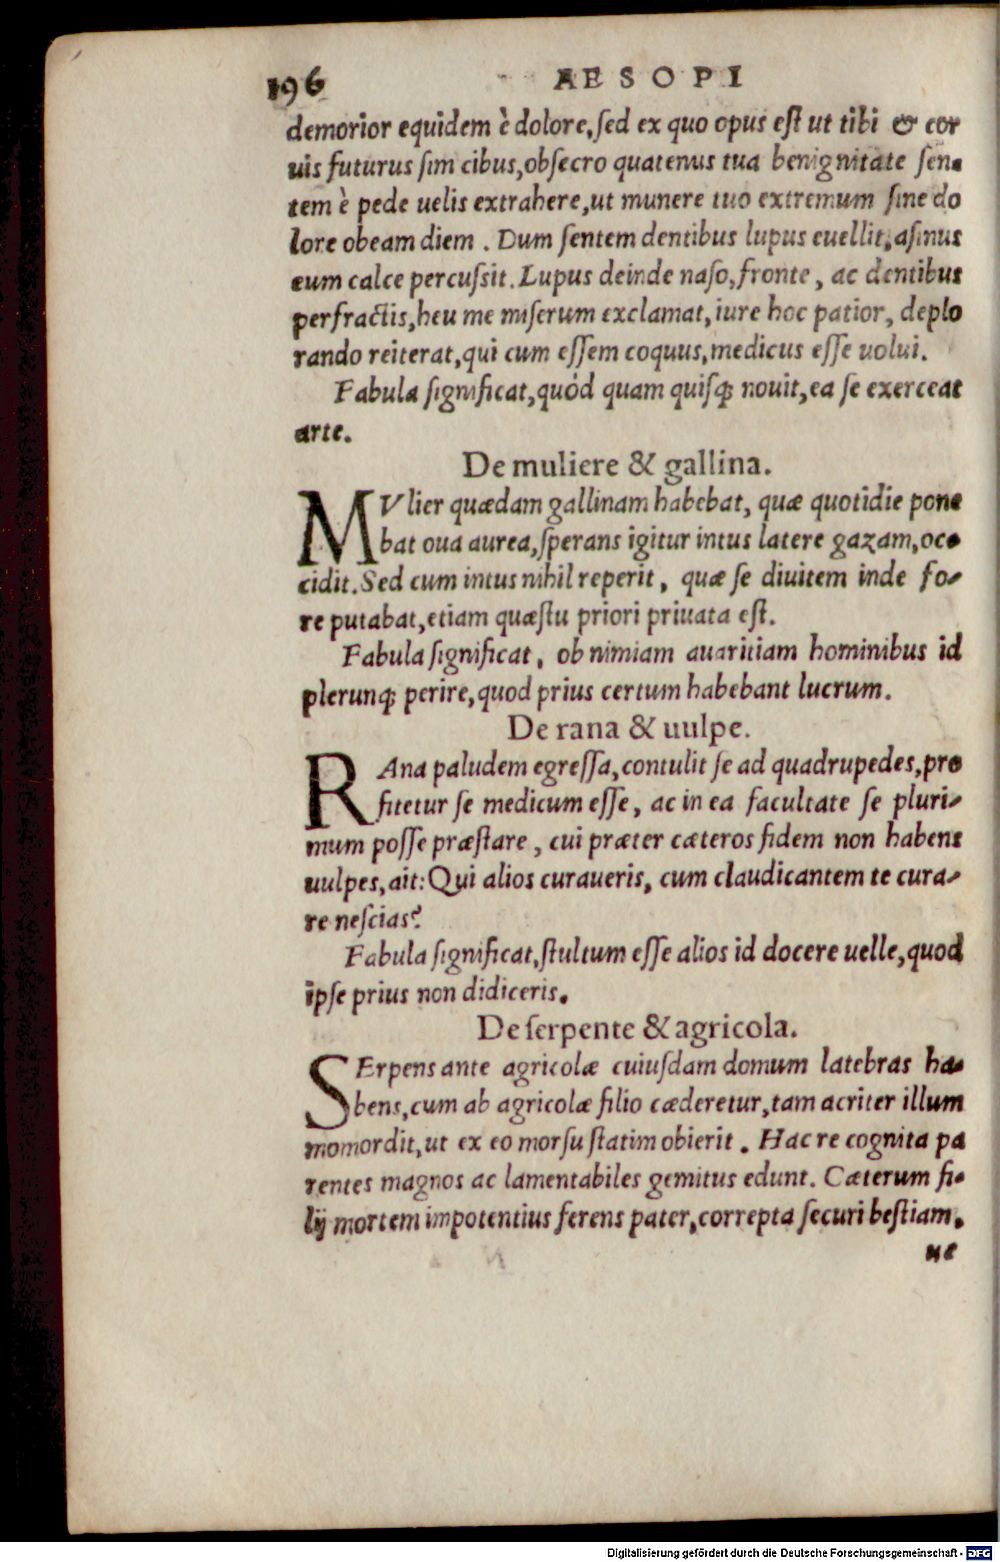 196 AESOPI
demorior equidem è dolore, ſed ex quo opus eſt ut tibi & cor
uis futurus ſim cibus, obſecro quatenus tua benignitate ſen-
tem è pede uelis extrahere, ut munere tuo extremum ſine do
lore obeam diem. Dum ſentem dentibus lupus euellit, aſinus
eum calce percuſsit. Lupus deinde naſo, fronte, ac dentibus
perfractis, heu me miſerum exclamat, iure hoc patior, deplo
rando reiterat, qui cum eſſem coquus, medicus eſſe uolui.
Fabula ſignificat, quòd quam quiſq; nouit, ea ſe exerceat
arte.
De muliere & gallina.
MVlier quædam gallinam habebat, quæ quotidie pone
bat oua aurea, ſperans igitur intus latere gazam, oc-
cidit. Sed cum intus nihil reperit, quæ ſe diuitem inde fo-
re putabat, etiam quæſtu priori priuata eſt.
Fabula ſignificat, ob nimiam auaritiam hominibus id
plerunq; perire, quod prius certum habebant lucrum.
De rana & uulpe.
RAna paludem egreſſa, contulit ſe ad quadrupedes, pro
fitetur ſe medicum eſſe, ac in ea facultate ſe pluri-
mum poſſe præſtare, cui præter cæteros fidem non habens
uulpes, ait: Qui alios curaueris, cum claudicantem te cura-
re neſcias?
Fabula ſignificat, ſtultum eſſe alios id docere uelle, quod
ipſe prius non didiceris.
De ſerpente & agricola.
SErpens ante agricolæ cuiuſdam domum latebras ha-
bens, cum ab agricolæ filio cæderetur, tam acriter illum
momordit, ut ex eo morſu ſtatim obierit. Hac re cognita pa
rentes magnos ac lamentabiles gemitus edunt. Cæterum fi-
lij mortem impotentius ferens pater, correpta ſecuri beſtiam,
ut
Digitalisierung gefördert durch die Deutsche Forschungsgemeinschaft - DFG